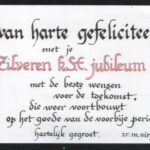 van harte gefelicitee
met je
Zilveren k.St. jubileum
met de beste wensen
voor de toekomst,
die weer voortbouwt
op het goede van de voorbije perio
hartelijk gegroet, zr. m. vin